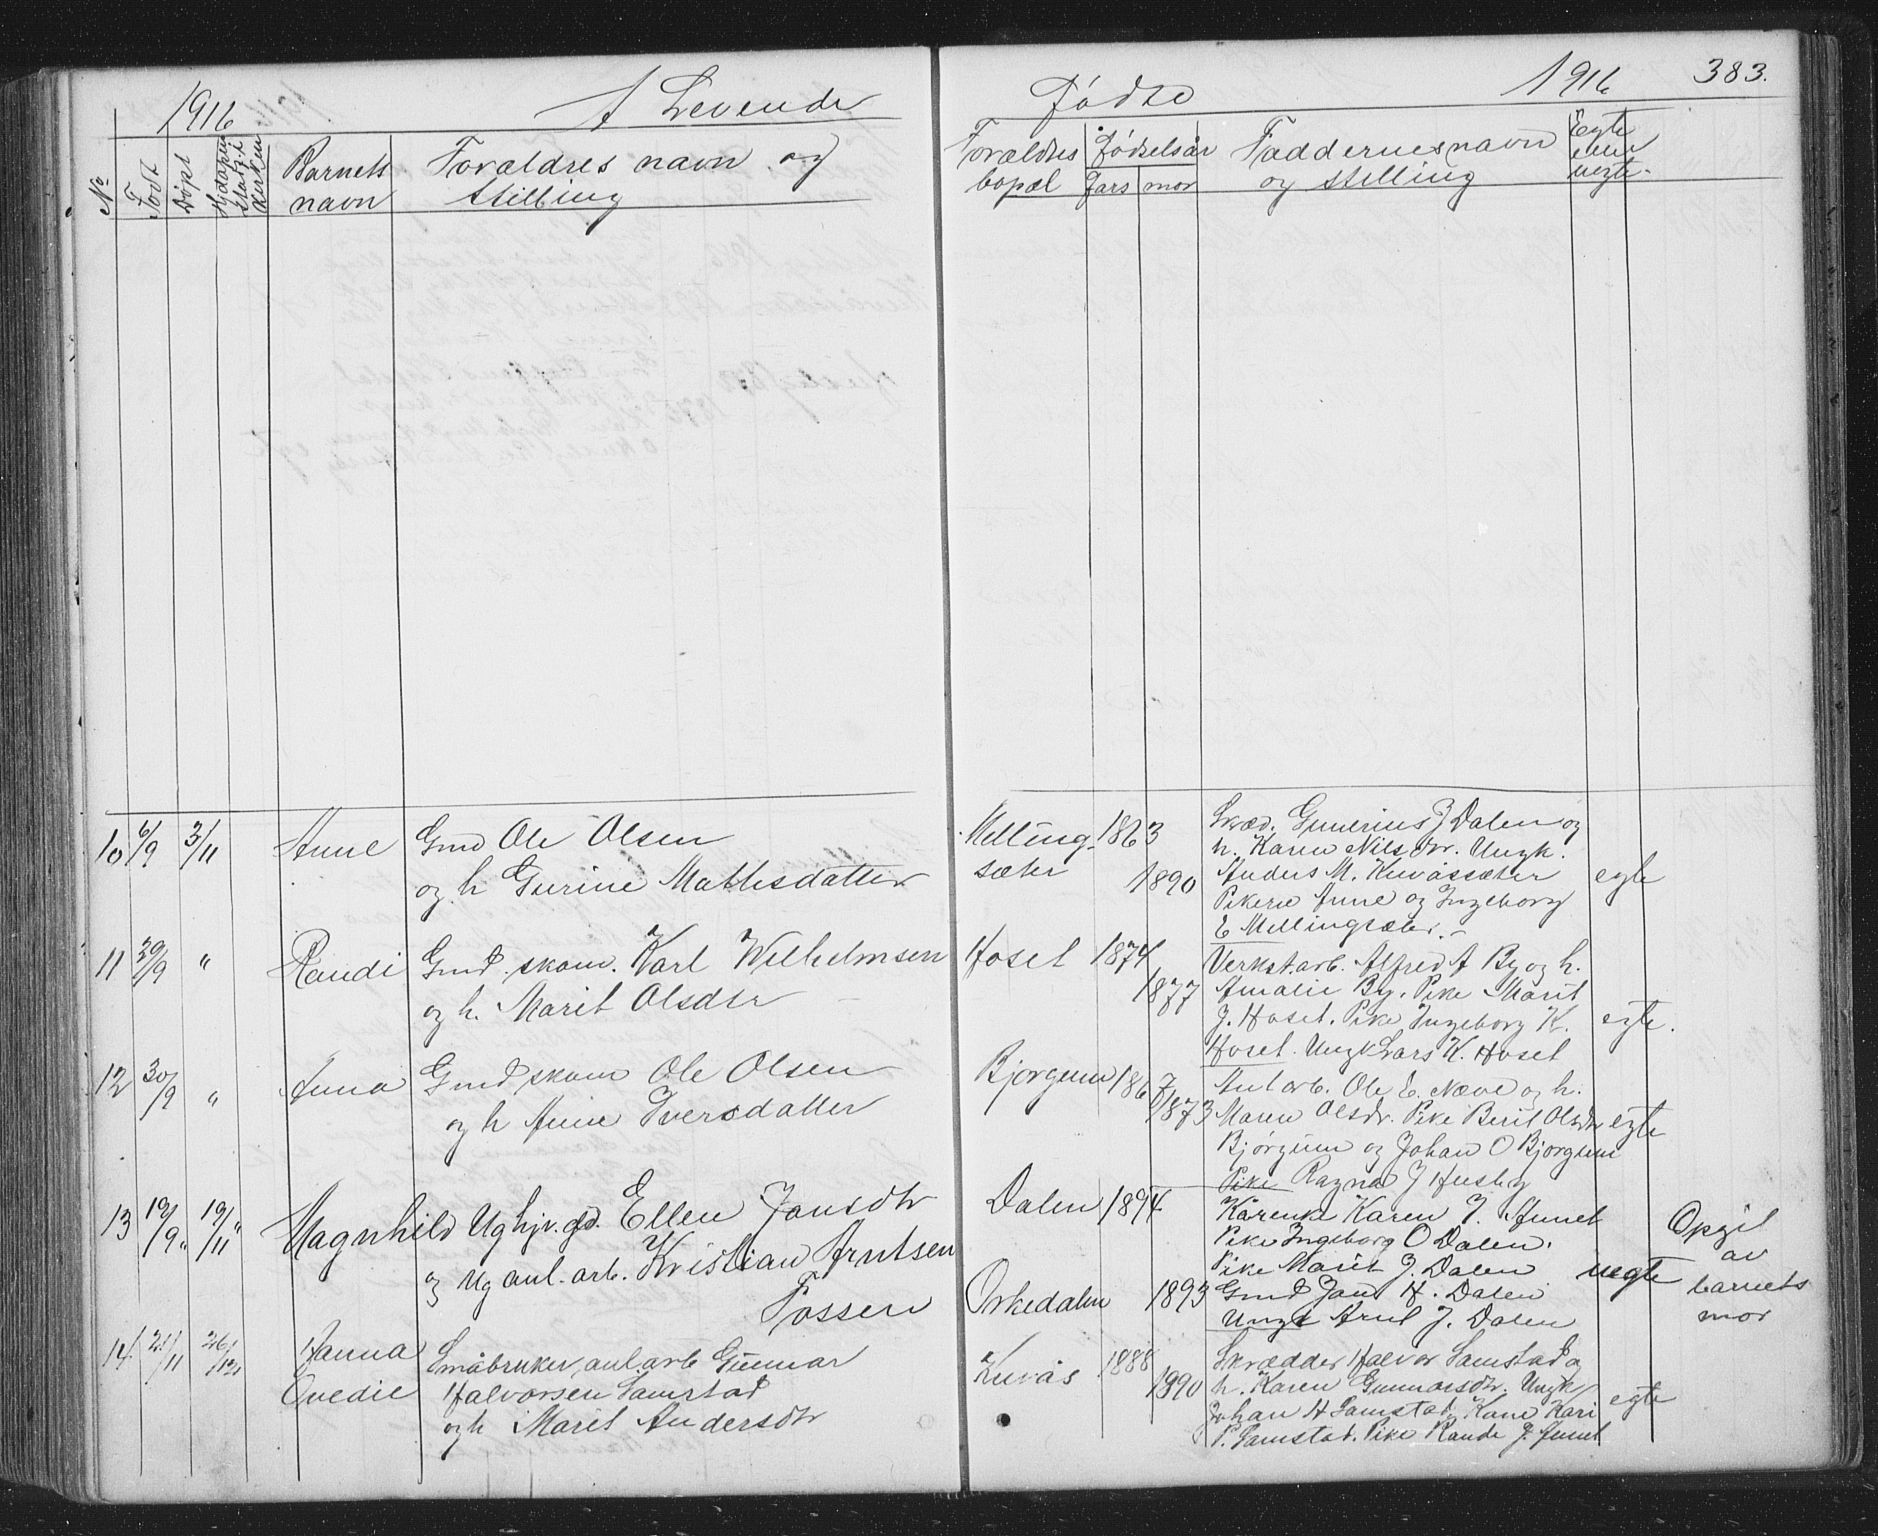 1916 A Levende Fødte 1916 383.
No
Født
Døpt
Hjdåpen
stadf. i
kirken
Barnets
navn
Forældres navn og
stilling
Forældres
bopæl
Fødselsår
fars mor
Faddernes navn
og stilling
Egte
eller
uegte.
10 6/9 3/11 Anne Gmd Ole Olsen
og h Gurine Mathisdatter
Melling-
sæter
1863
1890
Skræd. Gunerius J Dalen og
h. Karen Nilsdr. Ungk.
Anders M. Kuvåssæter
Pikerne Anne og Ingeborg
E Mellingsæter.
egte
11 29/9 " Randi Gmd. skom. Karl Wilhelmsen
og h. Marit Olsdtr
Hoset
1874
1877
Verkst.arb. Alfred A By og h.
Amalie By. Pike Marit
J. Hoset. Pike Ingeborg K.
Hoset. Ungk Lars K. Hoset
egte.
12 30/9 " Anna Gmd skom Ole Olsen
og h Anne Iversdatter
Bjørgum
1867
1873
Anl arb. Ole E. Næve og h.
Maren Olsdr. Pike Berit Olsdtr
Bjørgum og Johan O Bjørgum
Pike Ragna J Husby
egte
13 19/9 19/11 Magnhild Ug hjv. gd. Ellen Jonsdtr
og Ug anl. arb. Kristian Arntsen
Fossen
Dalen
1894
Orkedalen
1893
Kårenke Karen J. Aunet
Pike Ingeborg O Dalen.
Pike Marit J. Dalen
Gmd Jon H. Dalen
Ungk Arnt J. Dalen
uegte
Opgit
av
barnets
mor
14 21/11 26/12 Hanna
Ovedie
Småbruker, anl. arb Gunnar
Halvorsen Samstad
og h Marit Andersdtr
Kuvås
1888
1890
Skrædder Halvor Samstad og
h. Karen Gunnarsdtr. Ungk
Johan H Samstad, Kone Kari
P. Samstad. Pike Randi J. Aunet
egte